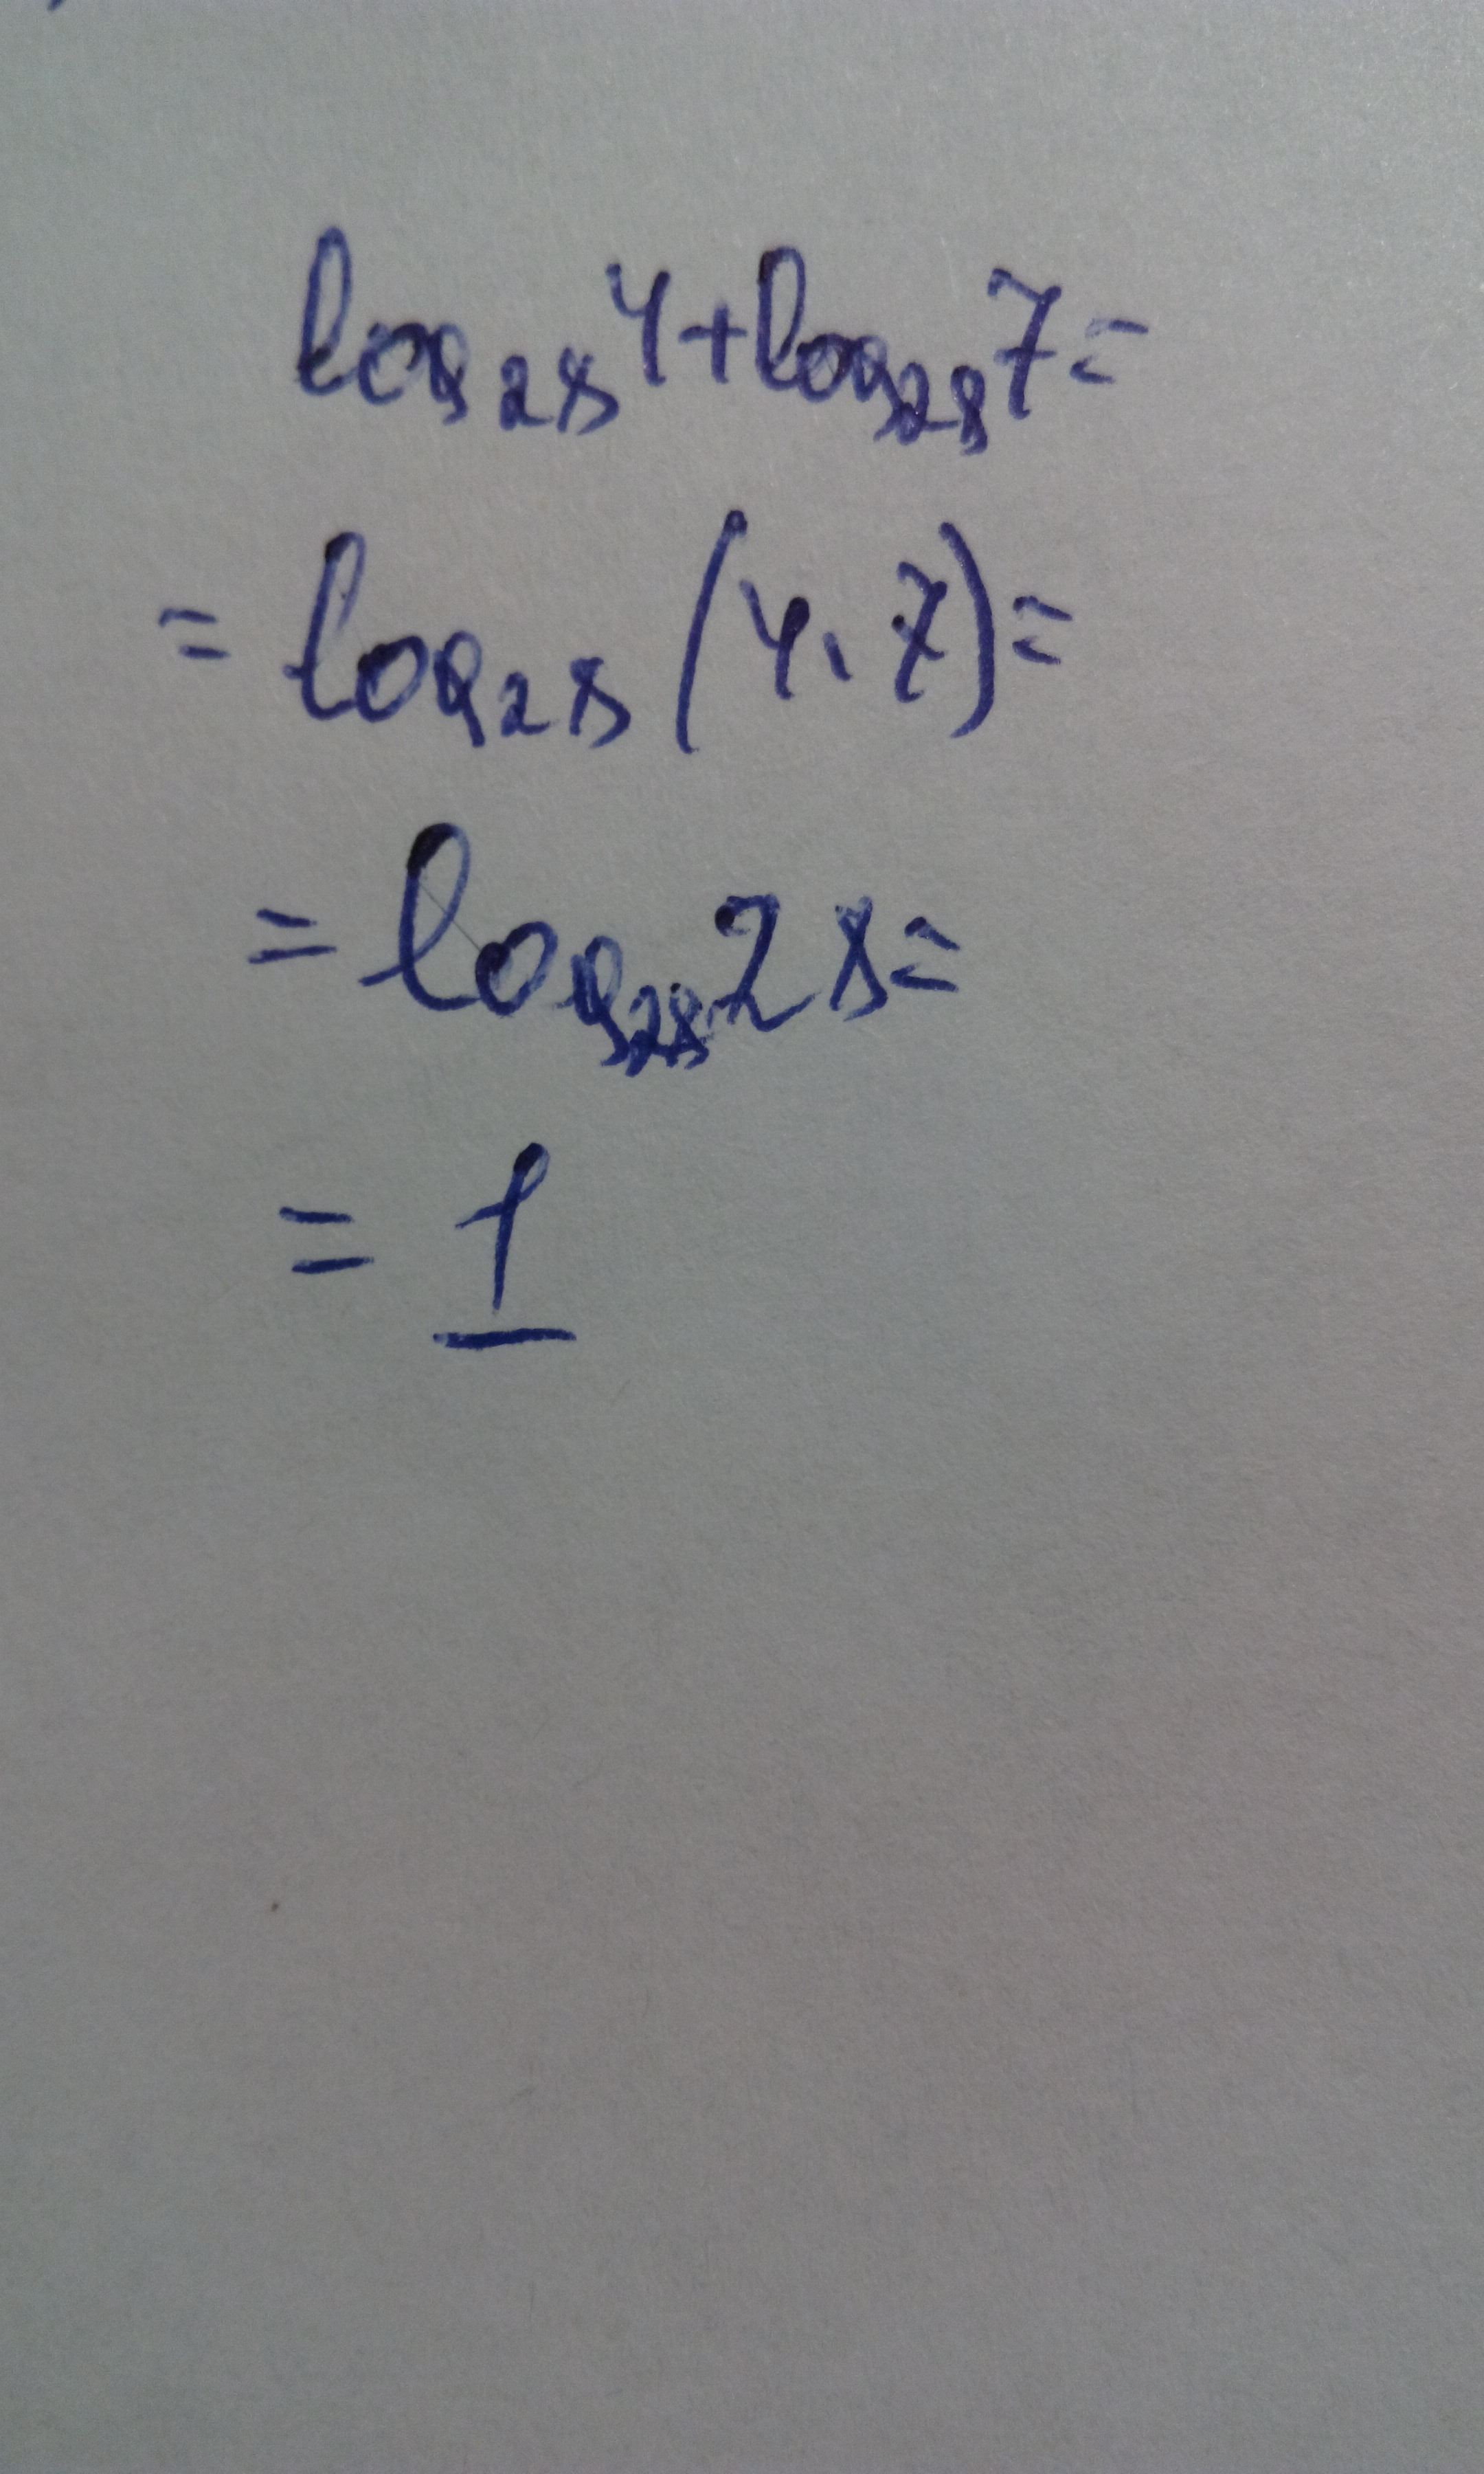 log₂₈4+log₂₈7=
=log₂₈(4·7)=
=log₂₈28=
=1